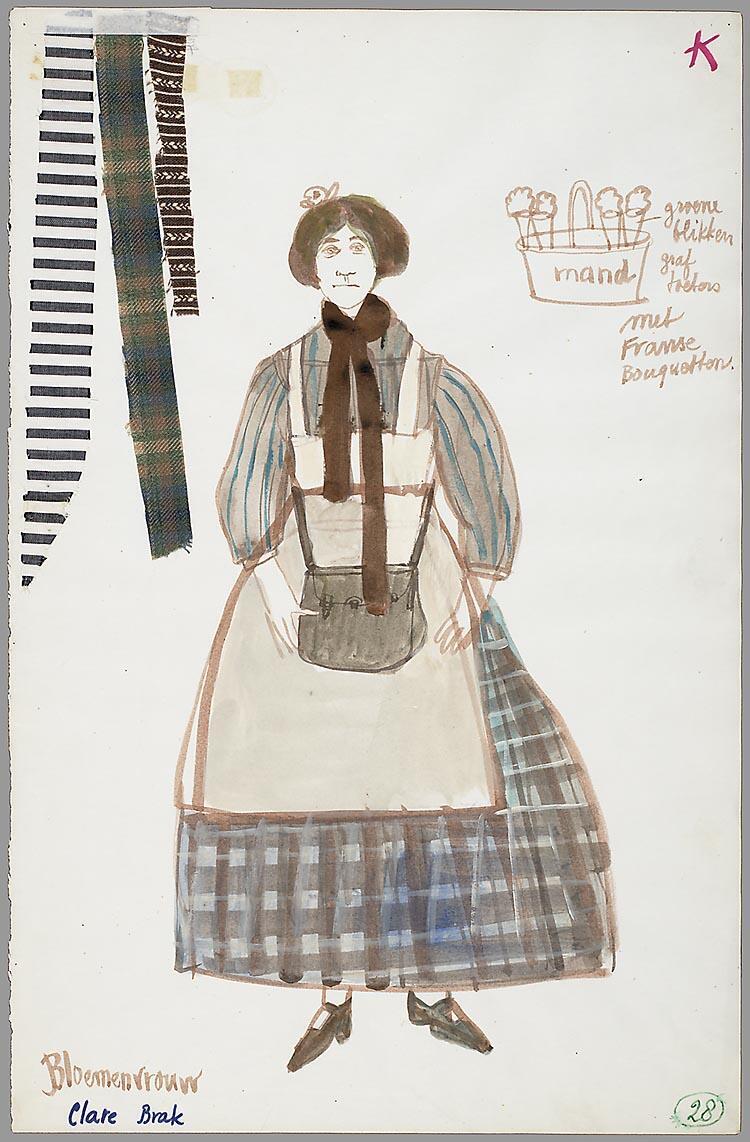 K
mand
groene
blikken
graf
toeters
met
Franse
Bouquetten.
Bloemenvrouw
Clare Brak
28